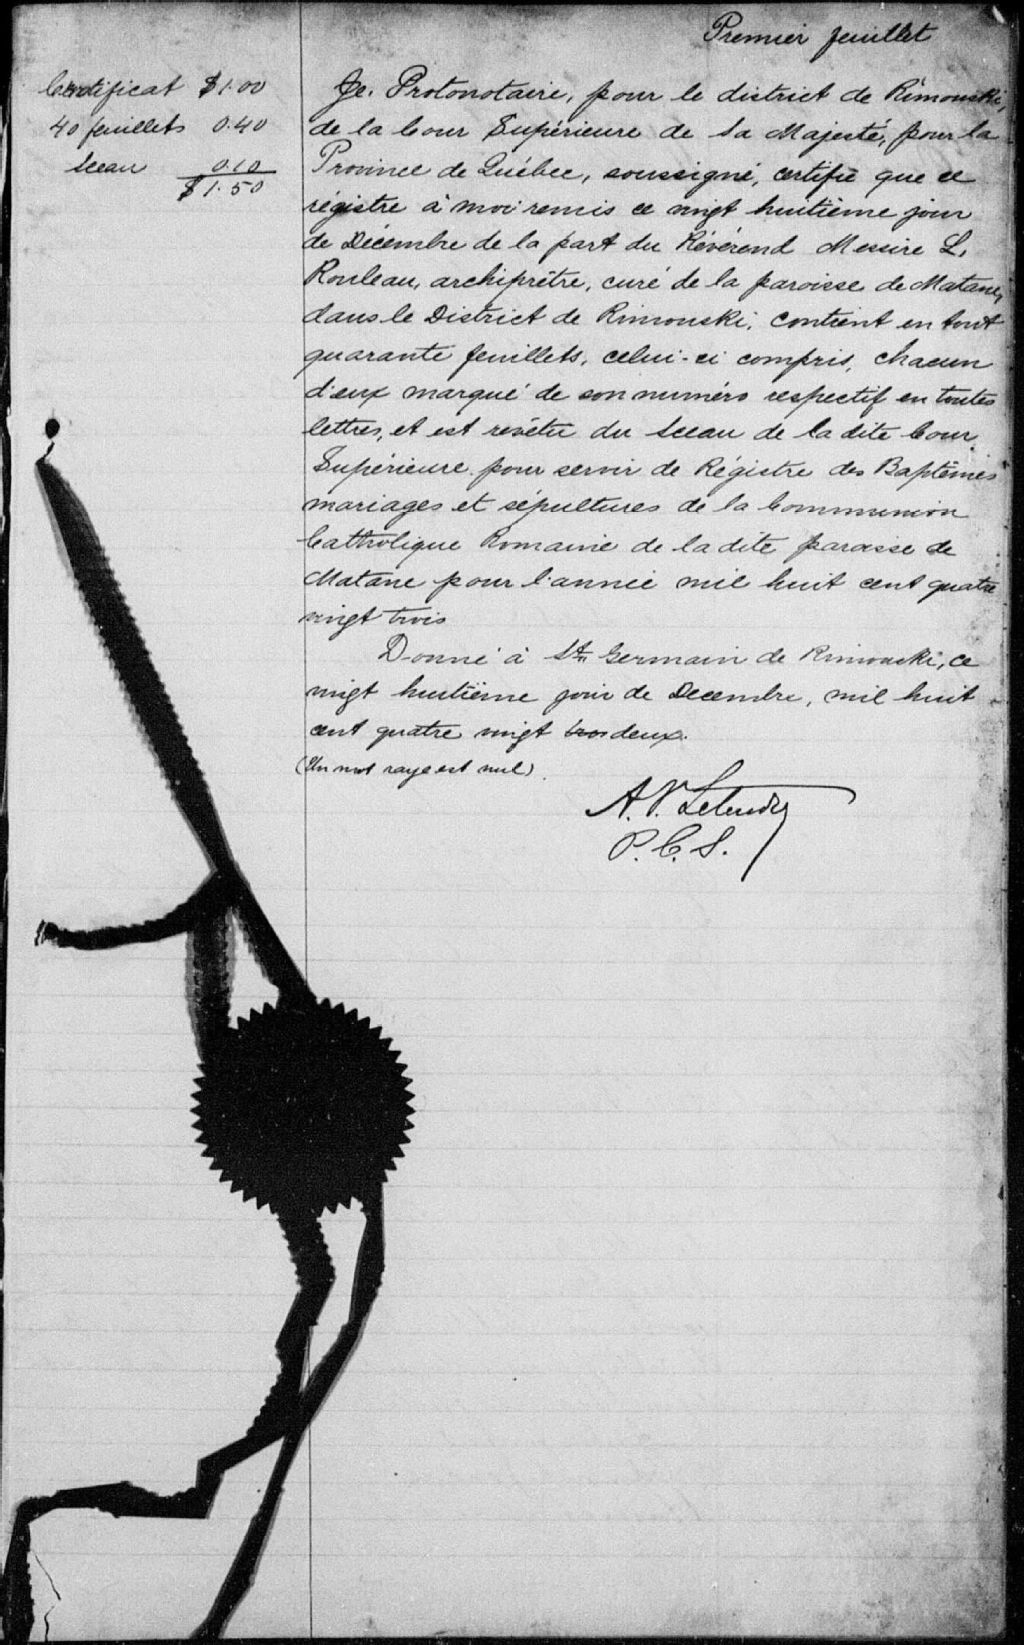 Premier feuillet
Certificat $1.00
40 feuillets 0.40
Sceau 0.10
$1.50
Je, Protonotaire, pour le district de Rimouski,
de la Cour Supérieure de Sa Majesté, pour la
Province de Québec, soussigné, certifie que ce
régistre à moi remis ce vingt huitième jour
de Décembre de la part du Révérend Messire L.
Rouleau, archiprêtre, curé de la paroisse de Matane,
dans le District de Rimouski, contient en tout
quarante feuillets, celui-ci compris, chacun
d'eux marqué de son numéro respectif en toutes
lettres, et est revêtu du Sceau de la dite Cour
Supérieure pour servir de Régistre des Baptêmes
mariages et sépultures de la Communion
Catholique Romaine de la dite paroisse de
Matane pour l'année mil huit cent quatre
vingt trois
Donné à St. Germain de Rimouski, ce
vingt huitième jour de Decembre, mil huit
cent quatre vingt trois deux.
(Un mot raye est nul).
A. P. Letendre
P. C. S.